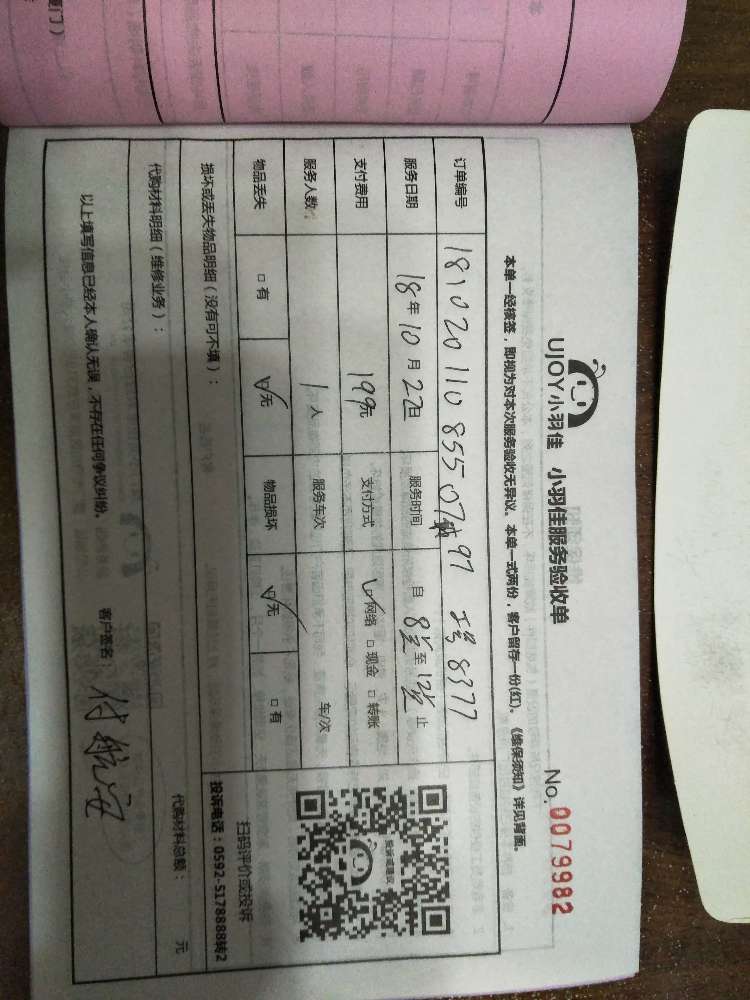 UJOY小羽佳 小羽佳服务验收单 No. 0079982
本单一经核签，即视为对本次服务验收无异议。本单一式两份，客户留存一份(红)。《维保须知》详见背面。
订单编号 18102011085507 97 工号8377
服务日期 18年10月22日 服务时间 自 8 至 12 止
支付费用 199元 支付方式 ☑网络 □现金 □转账
服务人数 1人 服务车次 车/次
物品丢失 □有 ☑无 物品损坏 ☑无 □有
损坏或丢失物品明细（没有可不填）：
扫码评价或投诉
投诉电话：0592-5178888转2
代购材料明细（维修业务）： 代购材料总额： 元
以上填写信息已经本人确认无误，不存在任何争议纠纷。 客户签名：